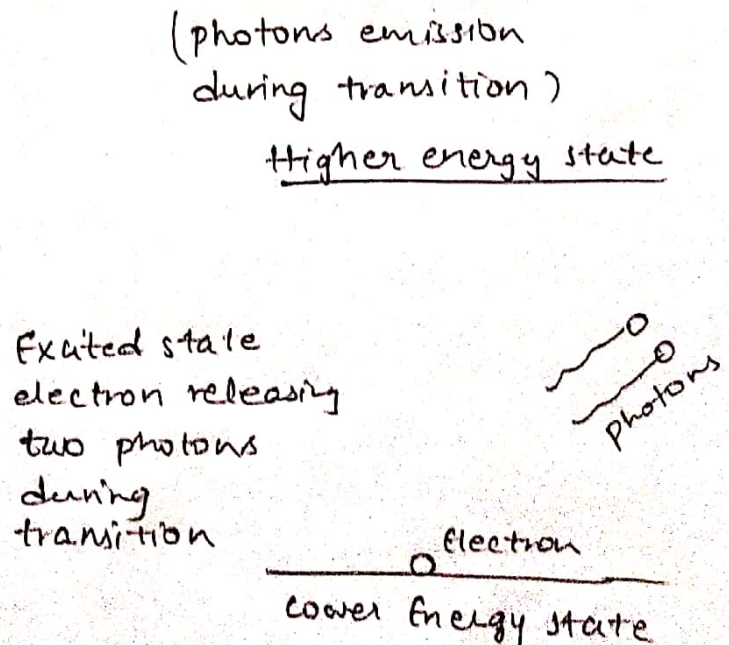 (photons emission
during transition)
Higher energy state
Excited state
electron releasing
two photons
during
transition
photons
Electron
Lower Energy state